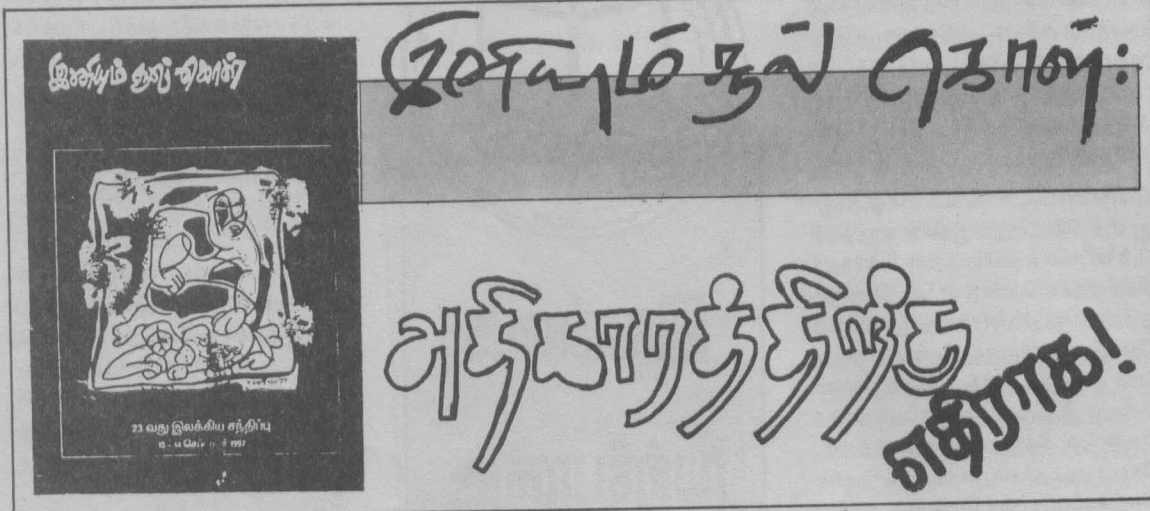 இனியும் சூல் கொள்
23 வது இலக்கிய சந்திப்பு
1997
இனியும் சூல் கொள்:
அதிகாரத்திற்கு
எதிராக!